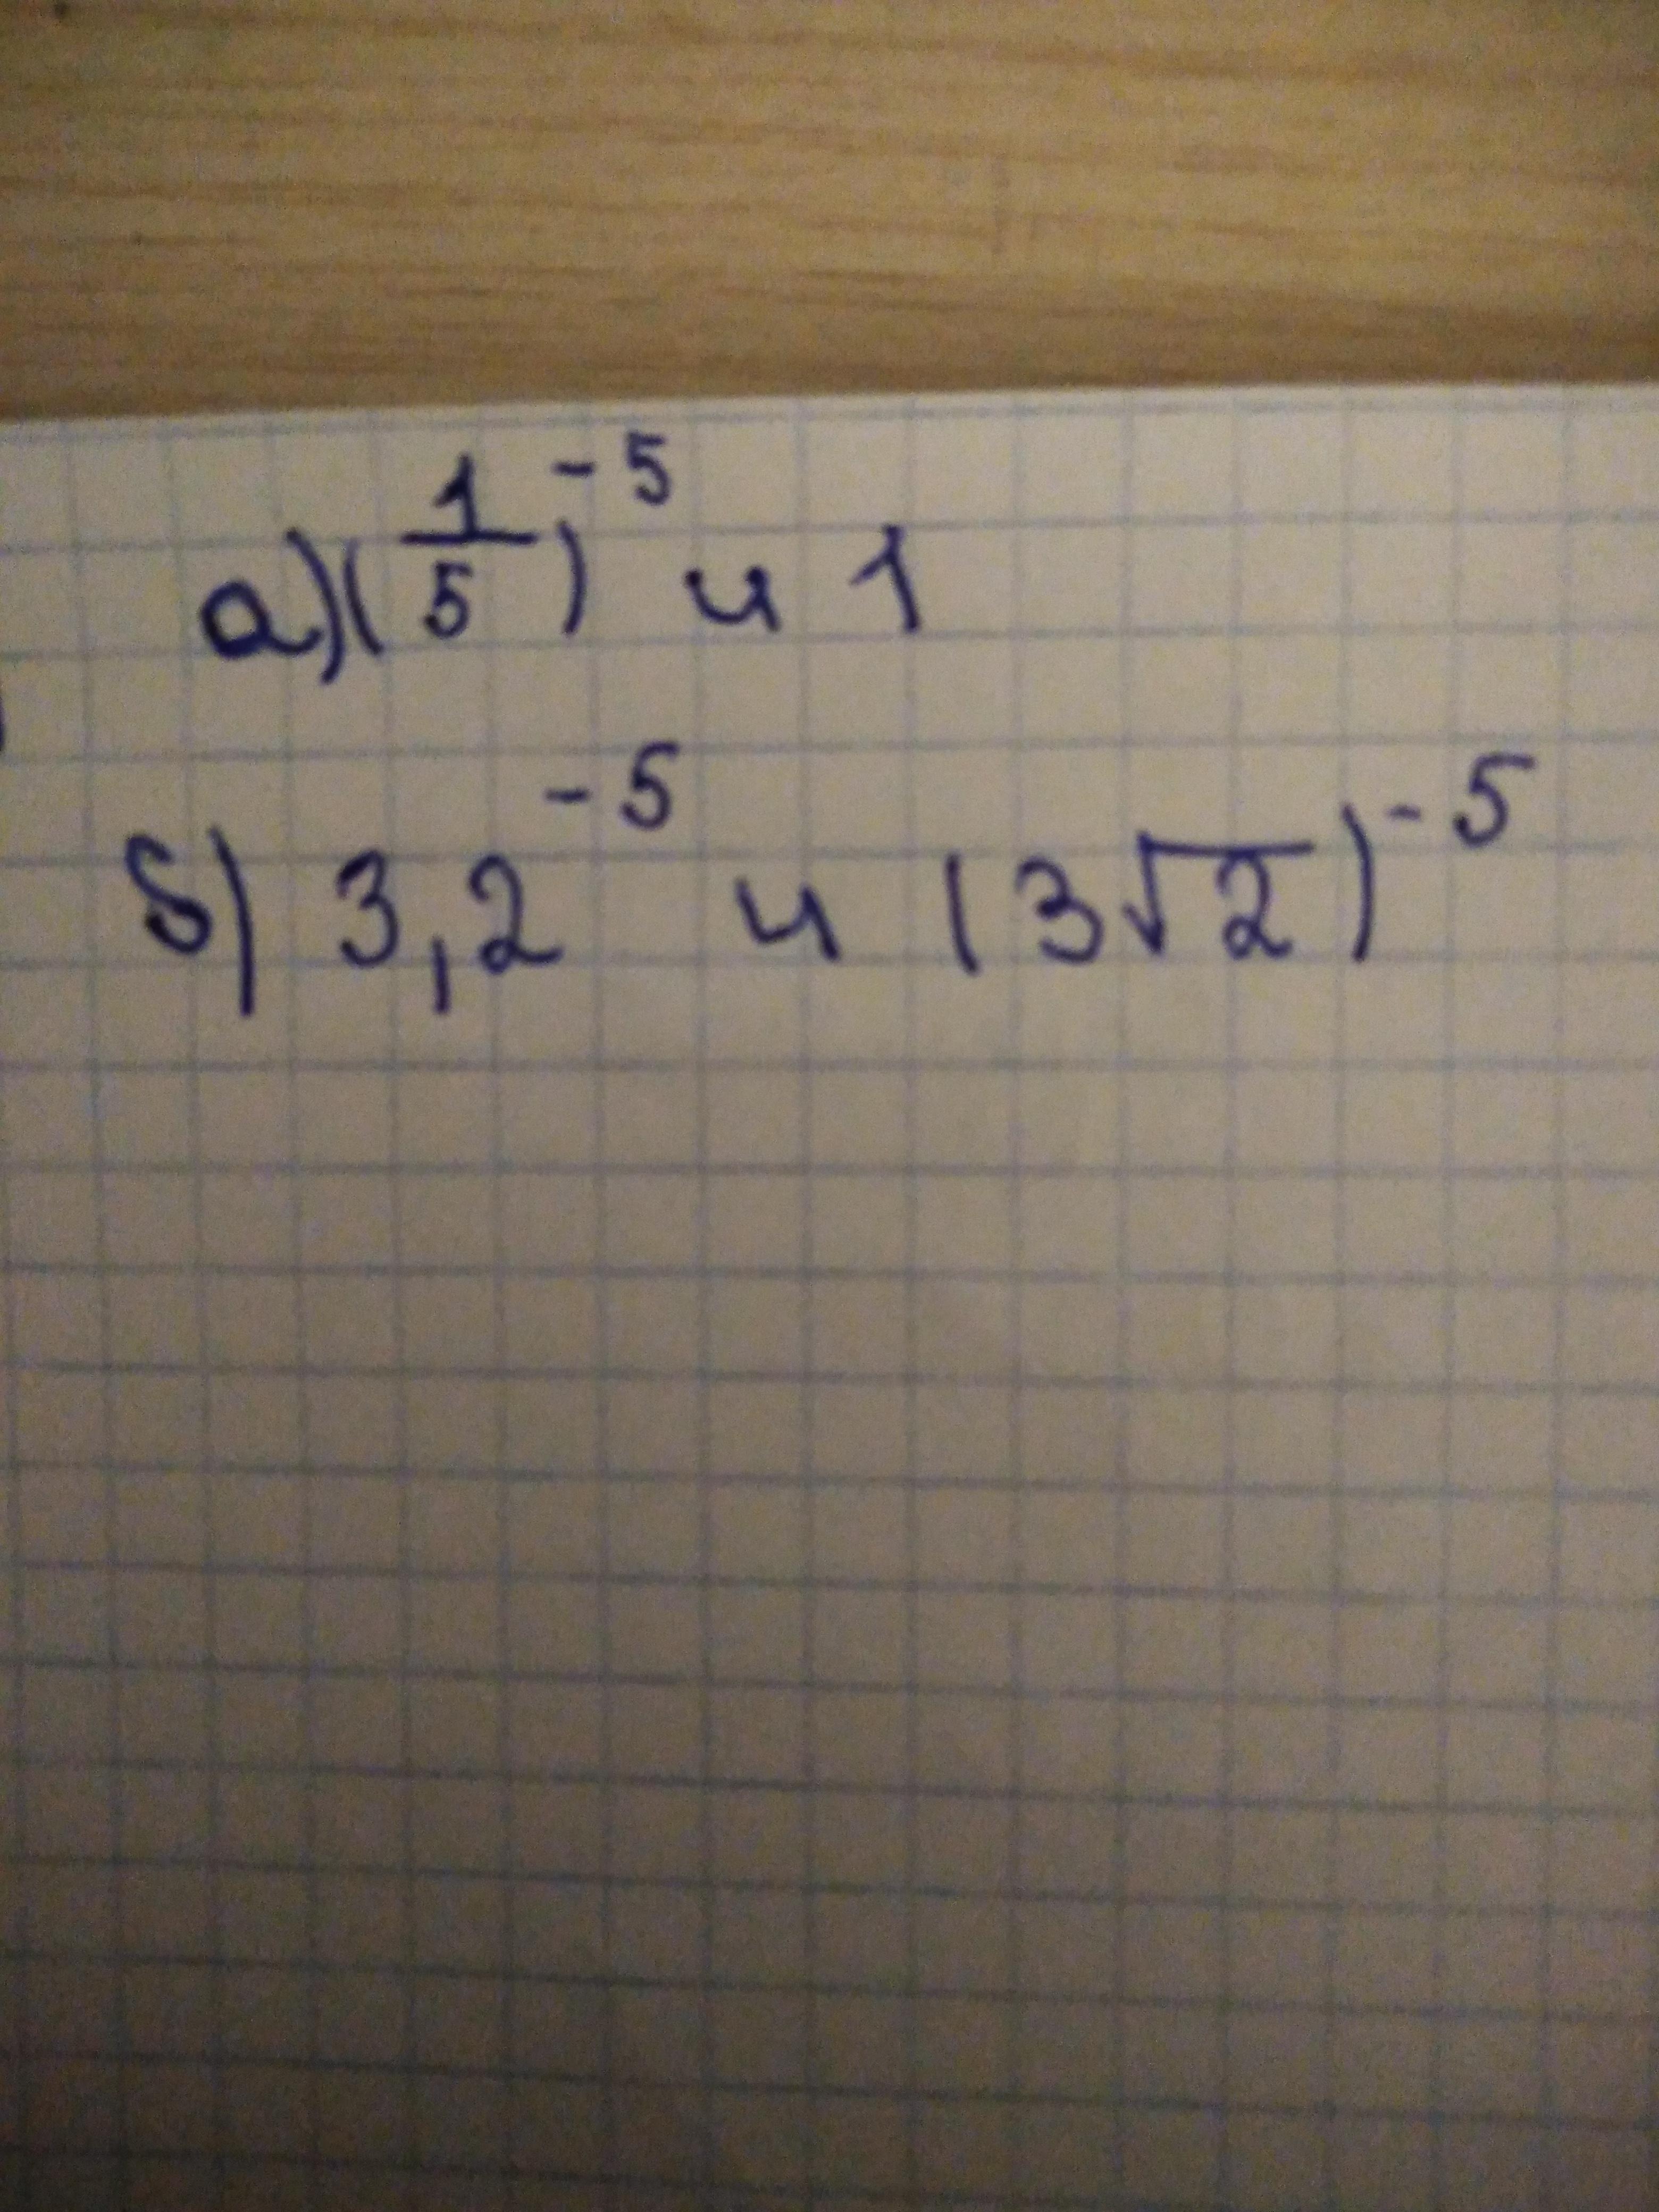 а) (1/5)^-5 и 1
б) 3,2^-5 и (3√2)^-5